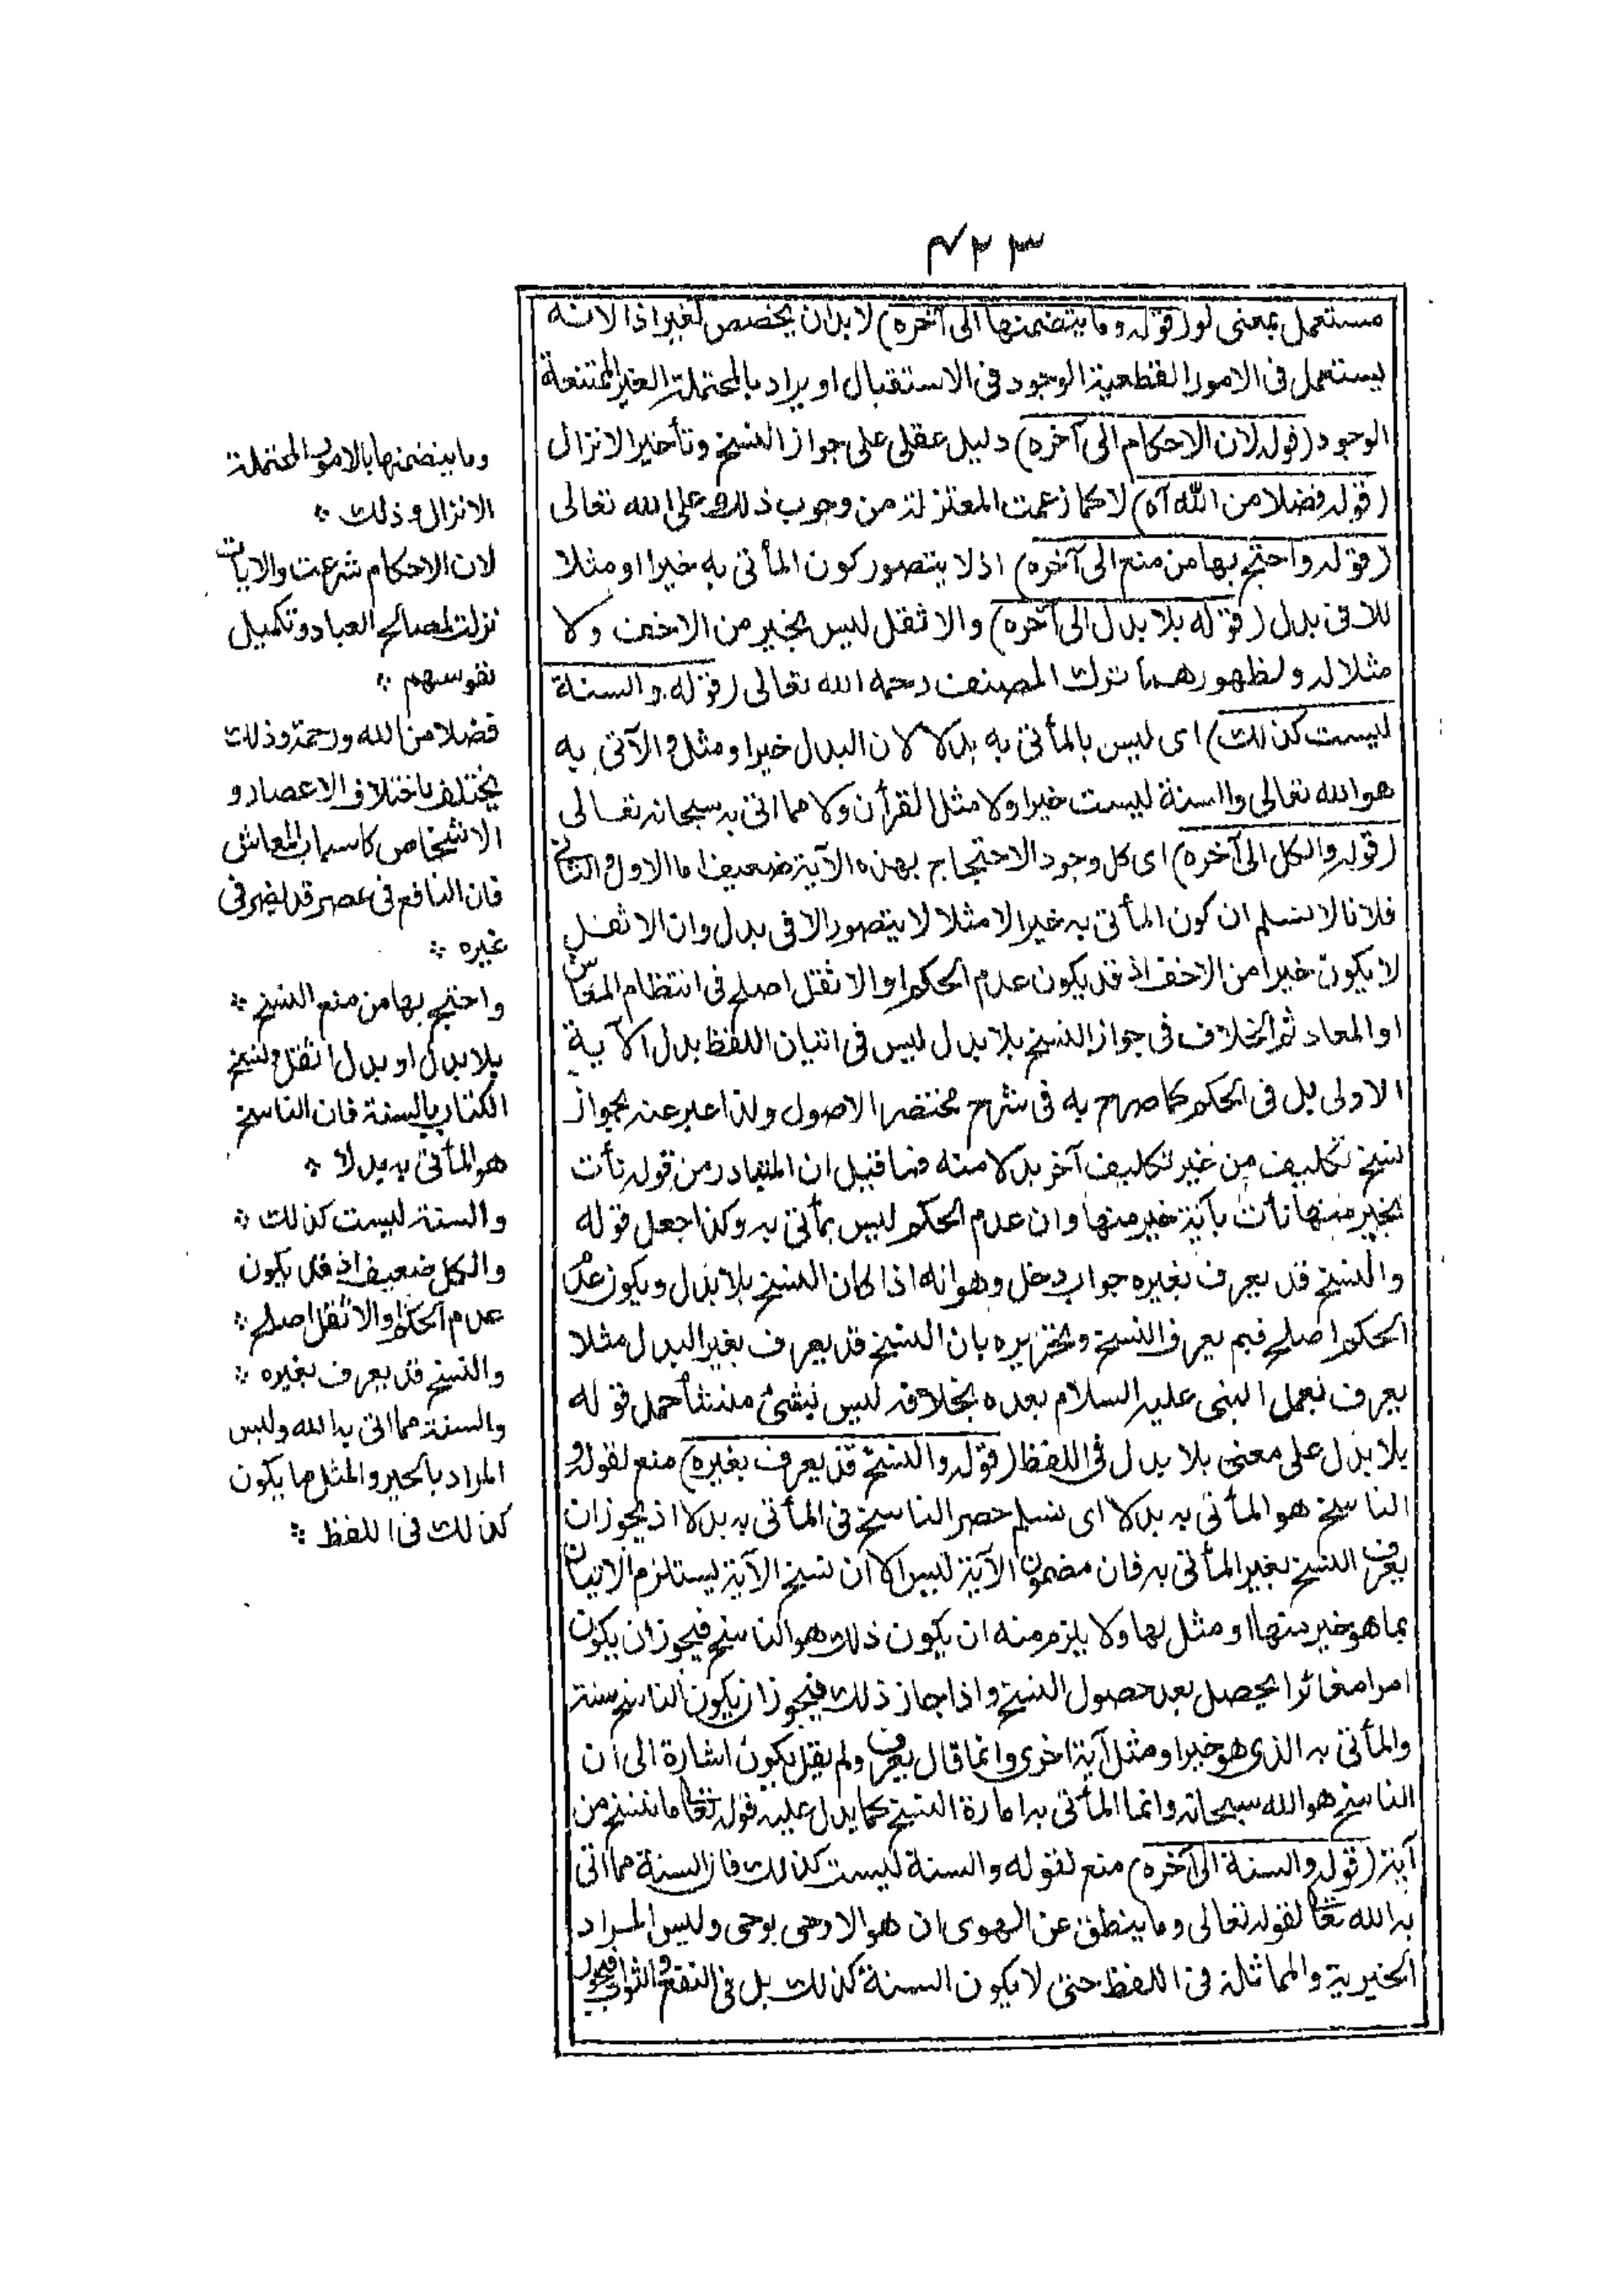 ٤٢٣
مستعمل بمعنى لو (قوله وما يتضمنها الى آخره) لا بد ان يخصص لغير اذا لانه
يستعمل فى الامور القطعية الوجود فى الاستقبال او يراد بالمحتملة الغير الممتنعة
الوجود (قوله لان الاحكام الى آخره) دليل عقلى على جواز النسخ وتأخير الانزال
(قوله فضلا من الله آه) لا كما زعمت المعتزلة من وجوب ذلك على الله تعالى
(قوله واحتج بها من منع الى آخره) اذ لا يتصور كون المأتى به خيرا او مثلا
للا فى بدل (قوله بلا بدل الى آخره) والاثقل ليس بخير من الاخف ولا
مثلا له ولظهورهما ترك المصنف رحمه الله تعالى (قوله والسنة
ليست كذلك) اى ليس بالمأتى به بدلا لان البدل خيرا ومثل والآتى به
هو الله تعالى والسنة ليست خيرا ولا مثل القرآن ولا مما اتى به سبحانه تعالى
(قوله والكل الى آخره) اى كل وجود الاحتجاج بهذه الآية ضعيف اما الاول والثانى
فلانا لا نسلم ان كون المأتى به خيرا لا مثلا لا يتصور الا فى بدل وان الاثقل
لا يكون خيرا من الاخف اذ قد يكون عدم الحكم او الاثقل اصلح فى انتظام المعاش
او المعاد ثم الخلاف فى جواز النسخ بلا بدل ليس فى اتيان اللفظ بدل الآية
الاولى بل فى الحكم كما صرح به فى شرح مختصر الاصول ولذا عبر عنه بجواز
نسخ تكليف من غير تكليف آخر بدلا منه فما قيل ان المتبادر من قوله نأت
بخير منها نأت بآية خير منها وان عدم الحكم ليس بمأتى به وكذا جعل قوله
والنسخ قد يعرف بغيره جواب دخل وهو انه اذا كان النسخ بلا بدل ويكون عدم
الحكم اصلح فبم يعرف النسخ وتحريره بان النسخ قد يعرف بغير البدل مثلا
يعرف بعمل النبى عليه السلام بعده بخلافه ليس بشئ منشأ حمل قوله
بلا بدل على معنى بلا بدل فى اللفظ (قوله والنسخ قد يعرف بغيره) منع لقوله و
الناسخ هو المأتى به بدلا اى نسلم حصر الناسخ فى المأتى به بدلا اذ يجوز ان
يعرف النسخ بغير المأتى به فان مضمون الآية ليس الا ان نسخ الآية يستلزم الاتيان
بما هو خير منها او مثل لها ولا يلزم منه ان يكون ذلك هو الناسخ فيجوز ان يكون
امرا مغائرا يحصل بعد حصول النسخ واذا جاز ذلك فيجوز ان يكون الناسخ سنة
والمأتى به الذى هو خير او مثل آية اخرى وانما قال يعرف ولم يقل يكون اشارة الى ان
الناسخ هو الله سبحانه وانما المأتى به امارة النسخ كما يدل عليه قوله تعا ما ننسخ من
آية (قوله والسنة الى آخره) منع لقوله والسنة ليست كذلك فان السنة مما اتى
به الله تعا لقوله تعالى وما ينطق عن الهوى ان هو الا وحى يوحى وليس المراد
الخيرية والمماثلة فى اللفظ حتى لا يكون السنة كذلك بل فى النفع والثواب فيجوز
وما يتضمنها بالامور المحتملة
الانزال وذلك ؞
لان الاحكام شرعت والايات
نزلت لمصالح العباد وتكميل
نفوسهم ؞
فضلا من الله ورحمة وذلك
يختلف باختلاف الاعصار و
الاشخاص كاسباب المعاش
فان النافع فى عصر قد يضر فى
غيره ؞
واحتج بها من منع النسخ ؞
بلا بدل او بدل اثقل ونسخ
الكتاب بالسنة فان الناسخ
هو المأتى به بدلا ؞
والسنة ليست كذلك ؞
والكل ضعيف اذ قد يكون
عدم الحكم او الاثقل اصلح ؞
والنسخ قد يعرف بغيره ؞
والسنة مما اتى به الله وليس
المراد بالخير والمثل ما يكون
كذلك فى اللفظ ؞